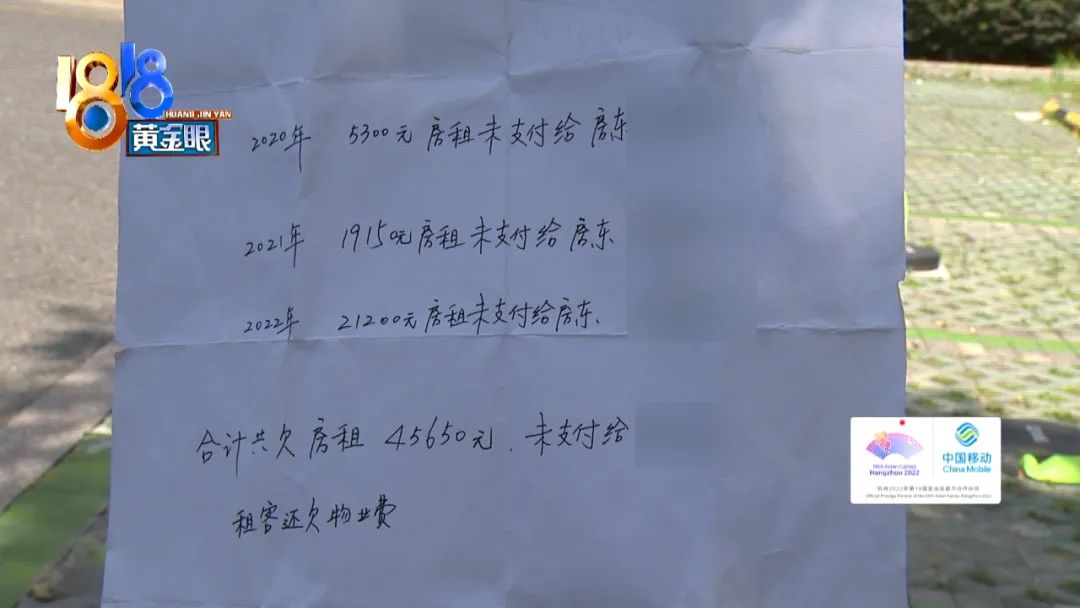 1818
HUANG JIN YAN
黄金眼
2020年 5300元房租未支付给房东
2021年 19150元房租未支付给房东
2022年 21200元房租未支付给房东
合计共欠房租 45650元.未支付给
租客还欠物业费
19th Asian Games
Hangzhou 2022
中国移动
China Mobile
杭州2022年第19届亚运会官方合作伙伴
Official Prestige Partner of the 19th Asian Games Hangzhou 2022